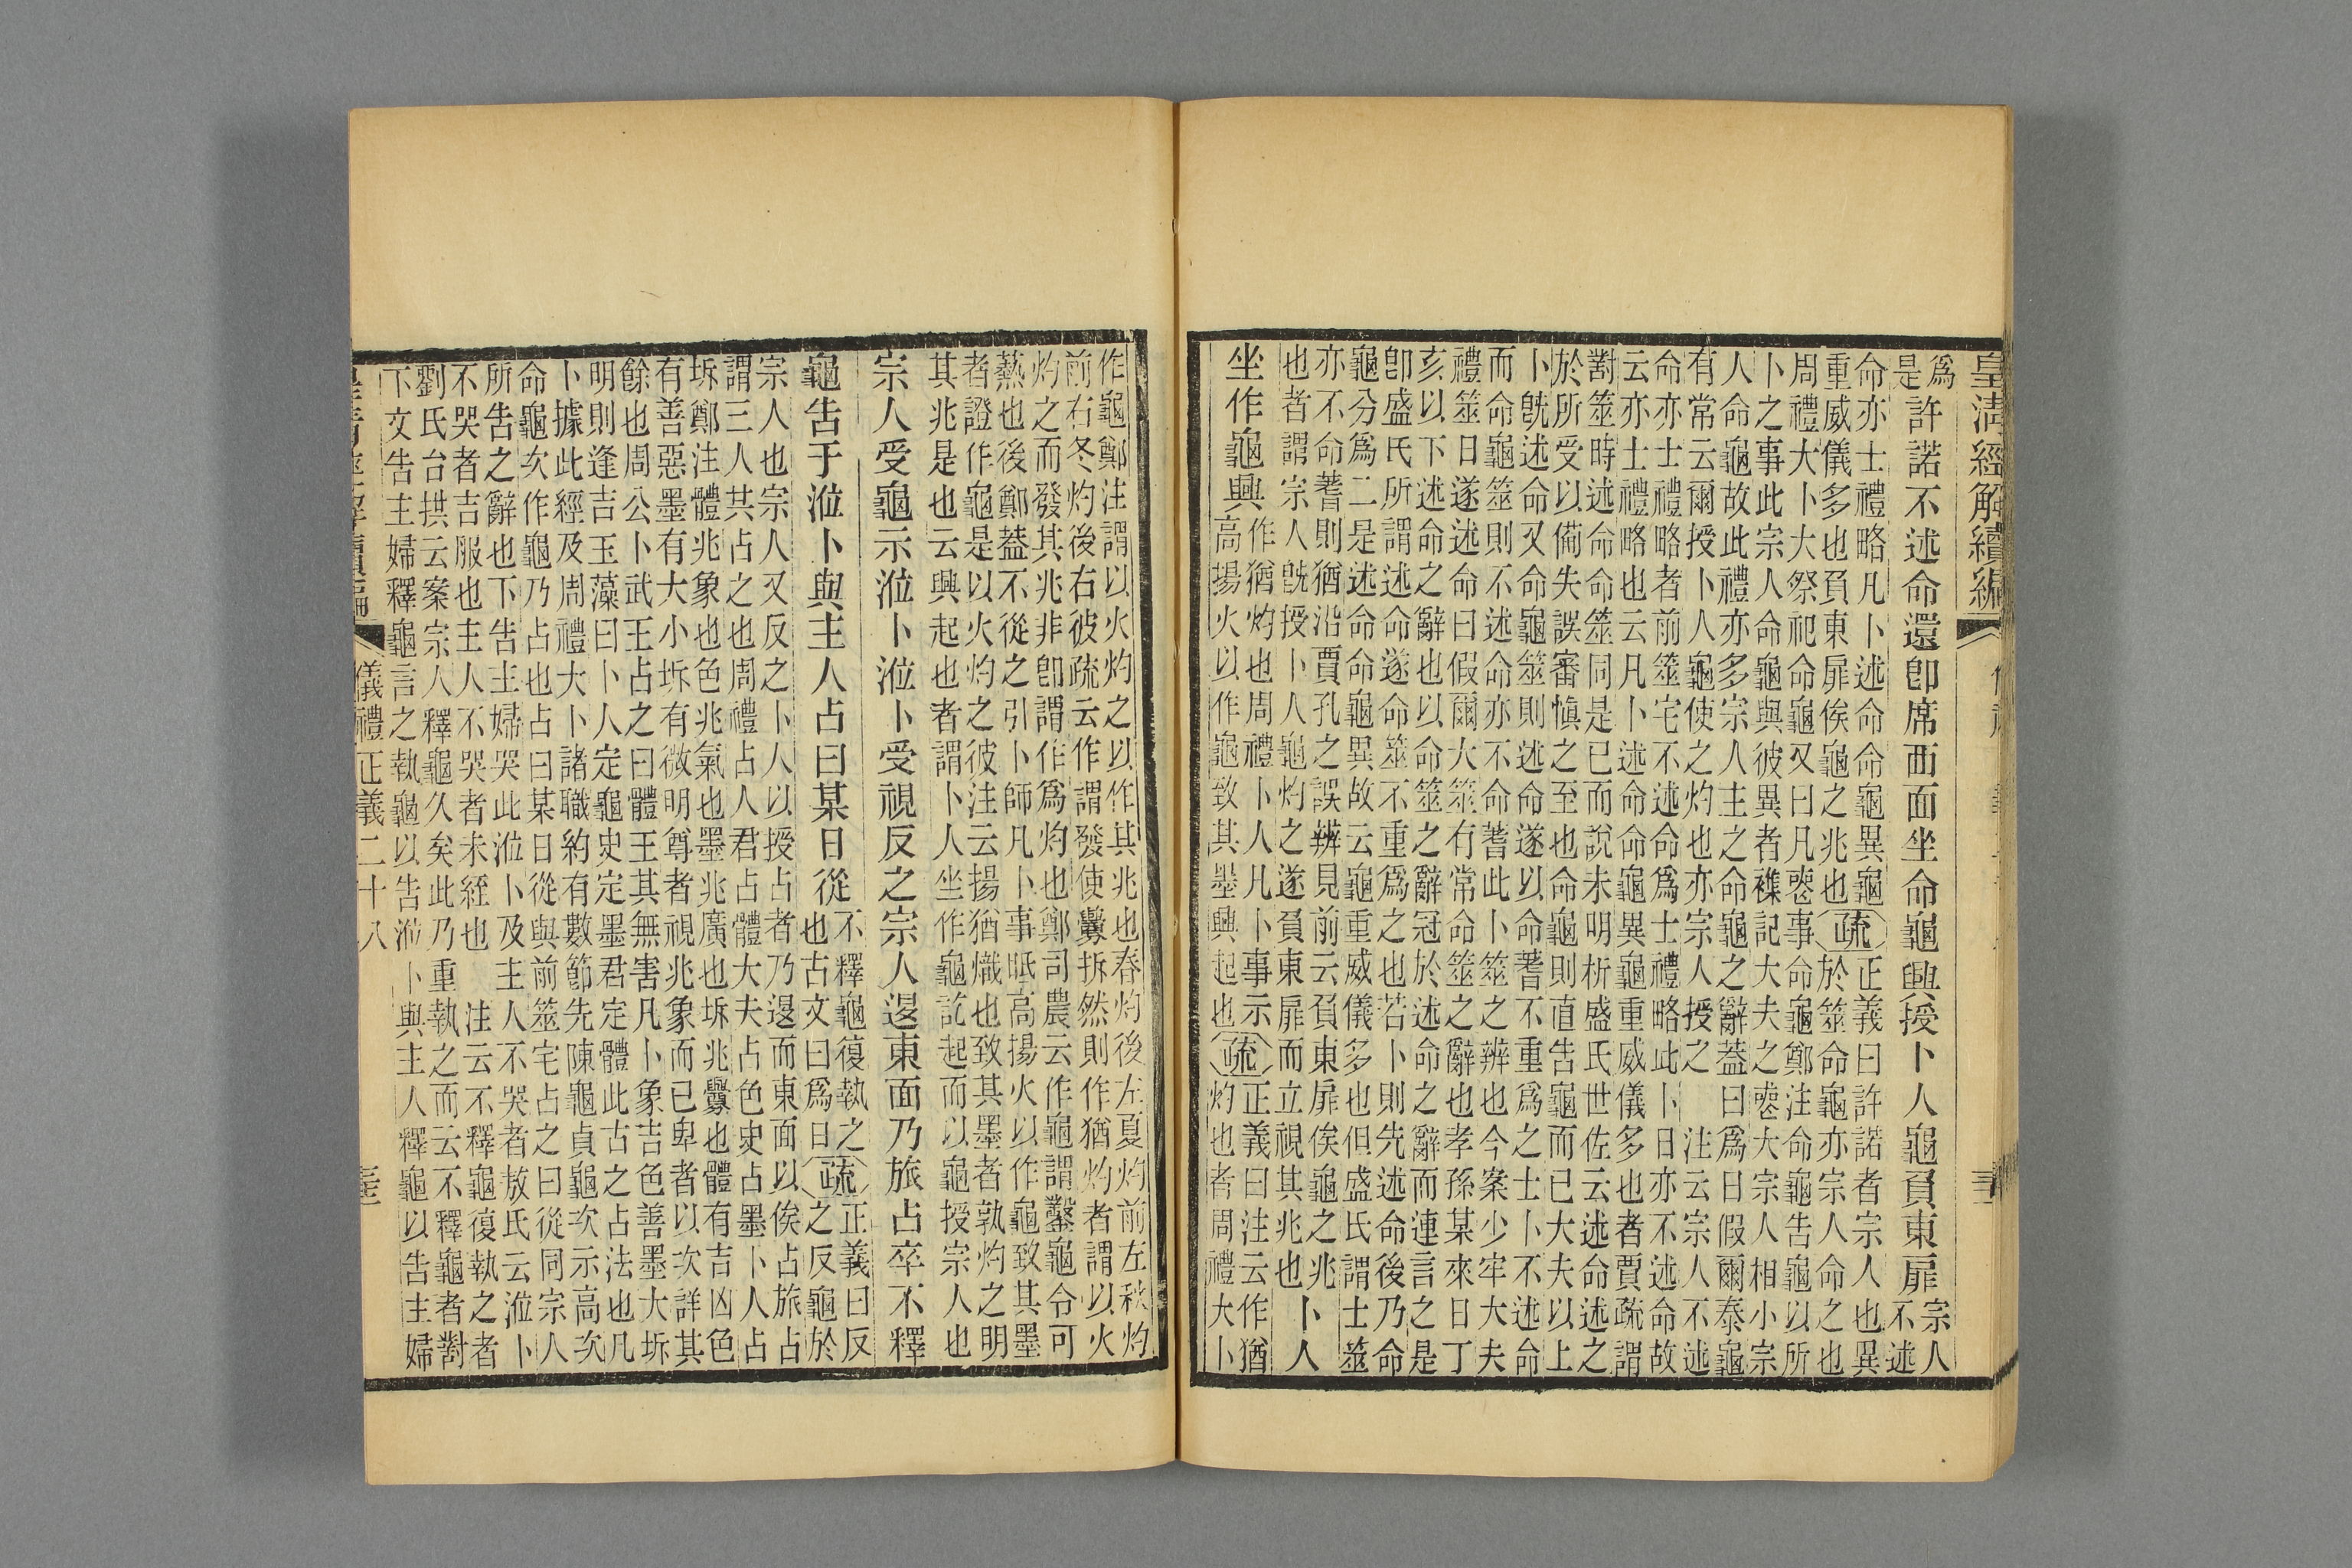 皇淸經解續編
爲
是
許諾不述命還卽席西面坐命龜興授卜人龜負東扉
宗人
不述
命亦士禮略凡卜述命命龜異龜
重威儀多也負東扉俟龜之兆也
疏
正義曰許諾者宗人也異
於筮命龜亦宗人命之也
周禮大卜大祭祀命龜又曰凡喪事命龜鄭注命龜告龜以所
卜之事此宗人命龜與彼異者襍記大夫之喪大宗人相小宗
人命龜故此禮亦多宗人主之命龜之辭蓋曰爲日假爾泰龜
有常云爾授卜人龜使之灼也亦宗人授之 注云宗人不述
命亦士禮略者前筮宅不述命爲士禮略此卜日亦不述命故
云亦士禮略也云凡卜述命命龜異龜重威儀多也者賈疏謂
對筮時述命命筮同是已而說未明析盛氏世佐云述命述之
於所受以僃失誤審愼之至也命龜則直告龜而已大夫以上
卜旣述命又命龜筮則述命遂以命蓍不重爲之士卜不述命
而命龜筮則不述命亦不命蓍此卜筮之辨也今案少牢大夫
禮筮日遂述命曰假爾大筮有常命筮之辭也孝孫某來日丁
亥以下述命之辭也以命筮之辭冠於述命之辭而連言之是
卽盛氏所謂述命遂命筮不重爲之也若卜則先述命後乃命
龜分爲二是述命命龜異故云龜重威儀多也但盛氏謂士筮
亦不命蓍則猶沿賈孔之誤辨見前云負東扉俟龜之兆
也者謂宗人旣授卜人龜灼之遂負東扉而立視其兆也
卜人
坐作龜興
作猶灼也周禮卜人凡卜事示
高揚火以作龜致其墨興起也
疏
正義曰注云作猶
灼也者周禮大卜
作龜鄭注謂以火灼之以作其兆也春灼後左夏灼前左秋灼
前右冬灼後右彼疏云作謂發使釁拆然則作猶灼者謂以火
灼之而發其兆非卽謂作爲灼也鄭司農云作龜謂鑿龜令可
爇也後鄭蓋不從之引卜師凡卜事眡高揚火以作龜致其墨
者證作龜是以火灼之彼注云揚猶熾也致其墨者孰灼之明
其兆是也云興起也者謂卜人坐作龜訖起而以龜授宗人也
宗人受龜示涖卜涖卜受視反之宗人退東面乃旅占卒不釋
龜告于涖卜與主人占曰某日從
不釋龜復執之
也古文曰爲日
疏
正義曰反
之反龜於
宗人也宗人又反之卜人以授占者乃退而東面以俟占旅占
謂三人共占之也周禮占人君占體大夫占色史占墨卜人占
坼鄭注體兆象也色兆氣也墨兆廣也坼兆釁也體有吉凶色
有善惡墨有大小坼有微明尊者視兆象而已卑者以次詳其
餘也周公卜武王占之曰體王其無害凡卜象吉色善墨大坼
明則逢吉玉藻曰卜人定龜史定墨君定體此古之占法也凡
卜據此經及周禮大卜諸職約有數節先陳龜貞龜次示高次
命龜次作龜乃占也占曰某日從與前筮宅占之曰從同宗人
所告之辭也下告主婦哭此涖卜及主人不哭者敖氏云涖卜
不哭者吉服也主人不哭者未絰也 注云不釋龜復執之者
劉氏台拱云案宗人釋龜久矣此乃重執之而云不釋龜者對
下文告主婦釋龜言之執龜以告涖卜與主人釋龜以告主婦
儀禮正義二十八